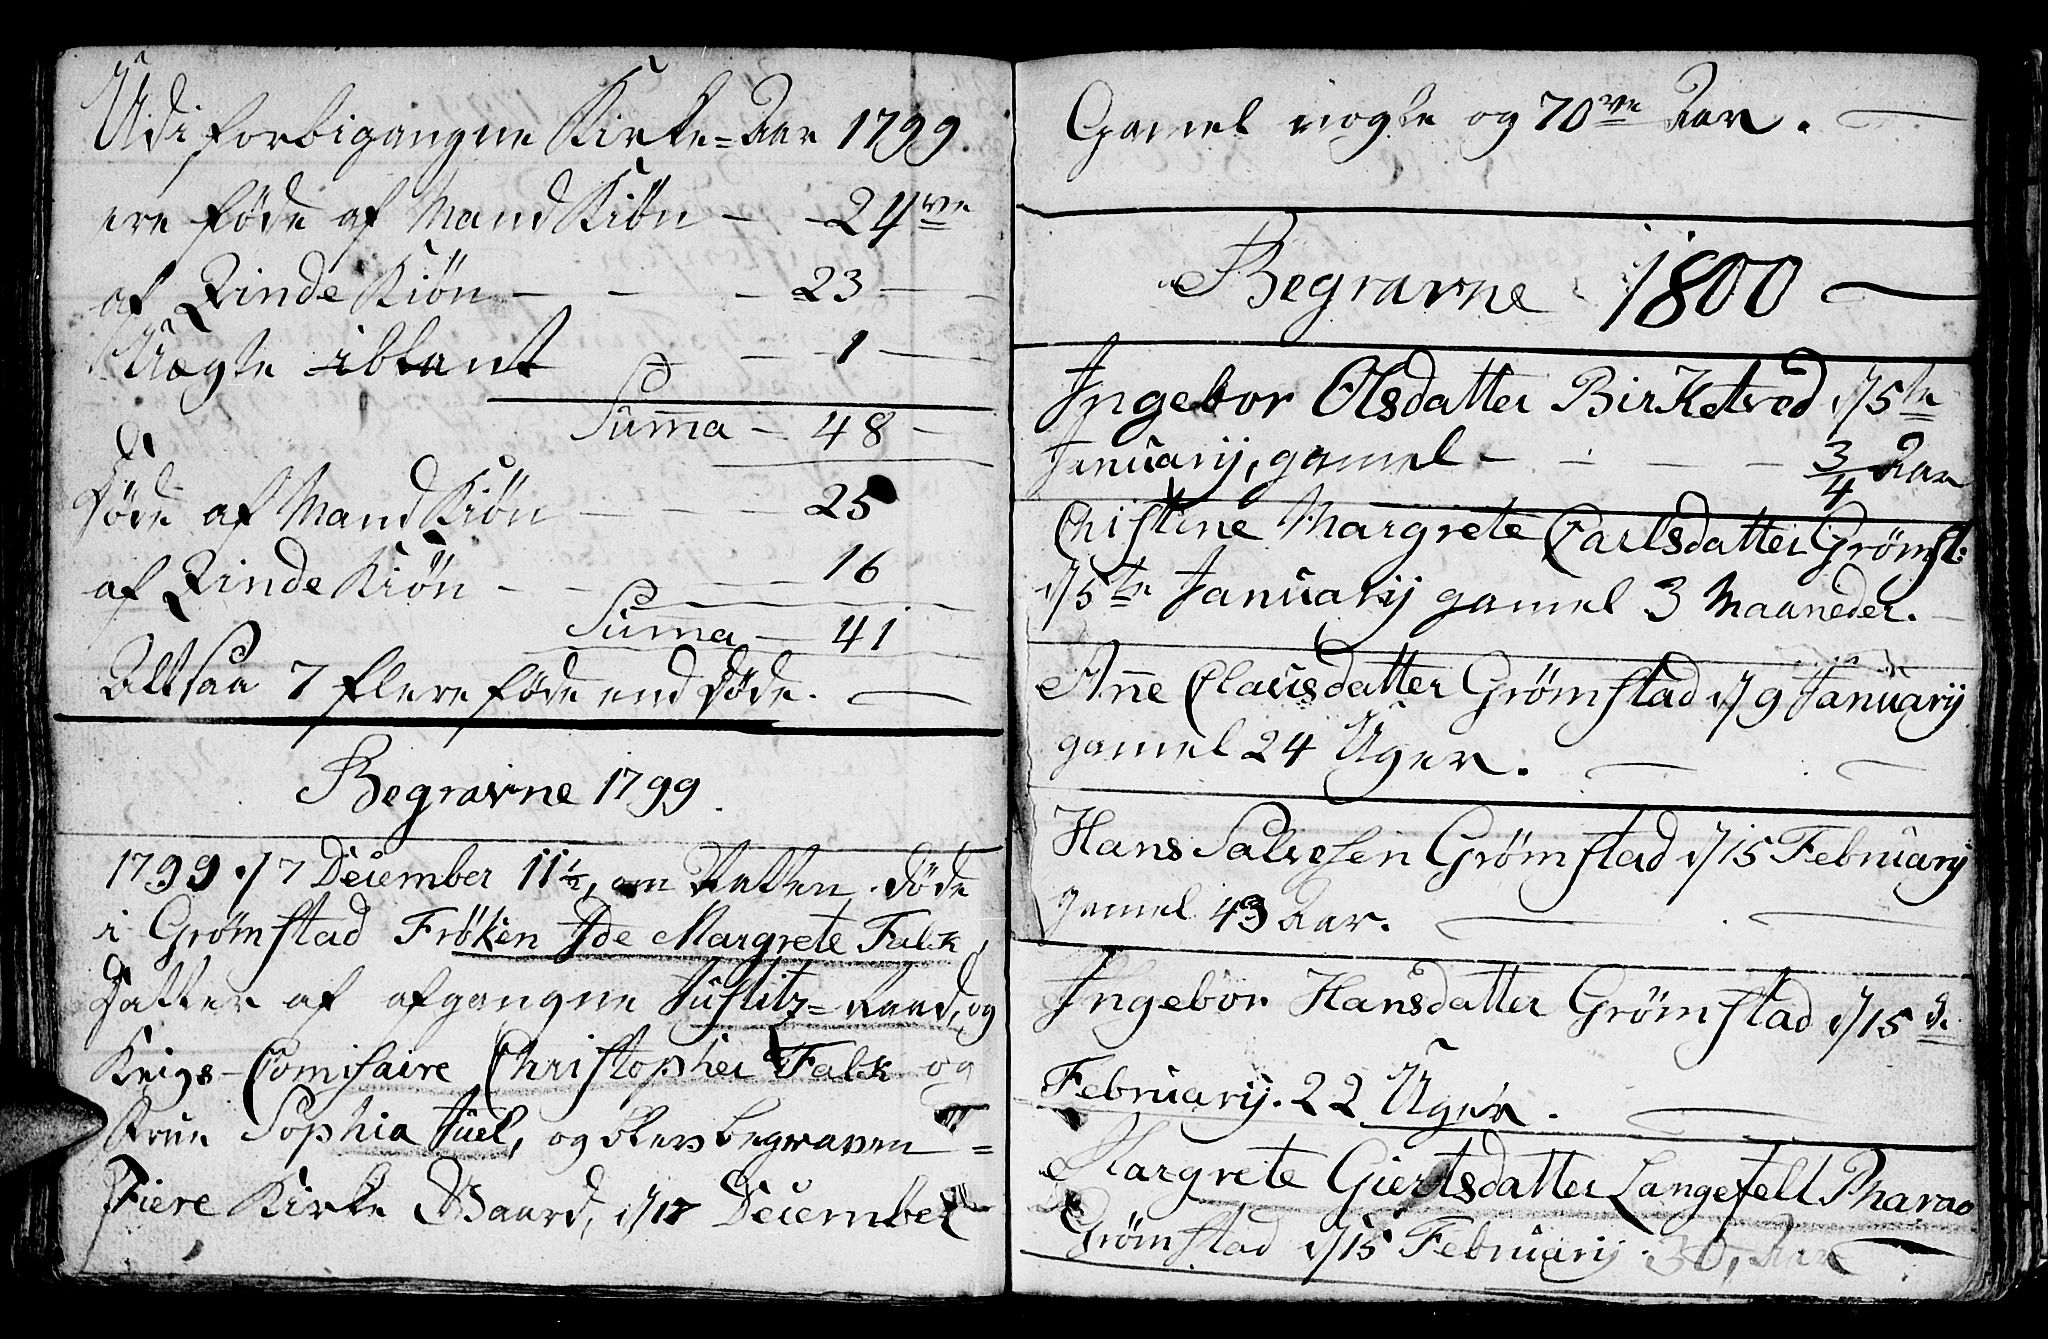 Udi forbigangne Kirke=Aar 1799
ere føde af Mand Kiön — 24ve
af Qvinde Kiön — — — 23 —
Uægte iblant — 1 —
Summa — 48 —
Döde af Mand Kiön — — — 25
af Qvinde Kiön — — — 16
Summa — 41
Alt saa 7 flere føde end Døde. —
Begravne 1799.
1799. d/7 December 11½, om Natten døde
i Grømstad Frøken Ide Margrete Falk,
Datter af afgangne Justitz=Raad, og
Krigs-Comisaire Christopher Falk og
Frue Sophia Juel, og blev begraven =
Fiere Kirke Gaard, d/17 December
Gamel nogle og 70ve Aar. —
Begravne 1800 —
Ingebor Olsdatter Birketved d/5te
Januarij, gamel — — — — 3/4 Aar
Christine Margrete Carlsdatter Grømst:
d/5te Januarij gamel 3 Maaneder. —
Anne Clausdatter Grømstad d/9 Januarij
gamel 24 Uger. — —
Hans Salvesen Grømstad d/15 Februarij
gamel 43 Aar. — —
Ingebor Hansdatter Grømstad d/15 d.
Februarij. 22 Uger. —
Margrete Giertsdatter Langefelt Pharao
Grømstad d/15 Februarij. 30, Aar —